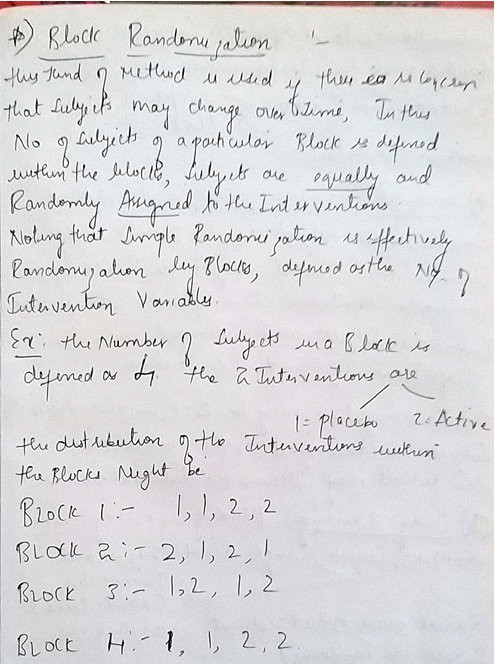 *) Block Randomization :-
this kind of method is used if there is concern
that subjects may change over time, In this
No of subjects of a particular Block is defined
within the block, subjects are equally and
Randomly Assigned to the Interventions.
Noting that Simple Randomization is effectively
Randomization by Blocks, defined as the No. of
Intervention Variables.
Ex: the Number of Subjects in a Block is
defined as 4. the 2 Interventions are
1 = placebo 2 = Active
the distribution of the Interventions within
the Blocks Might be
Block 1 :- 1, 1, 2, 2
BLOCK 2 :- 2, 1, 2, 1
BLOCK 3 :- 1, 2, 1, 2
BLOCK 4 :- 1, 1, 2, 2.